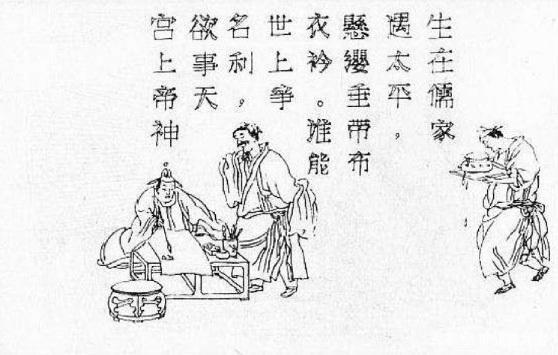 生在儒家
遇太平，
懸纓垂帶布
衣衿。誰能
世上爭
名利，
欲事天
宫上帝神